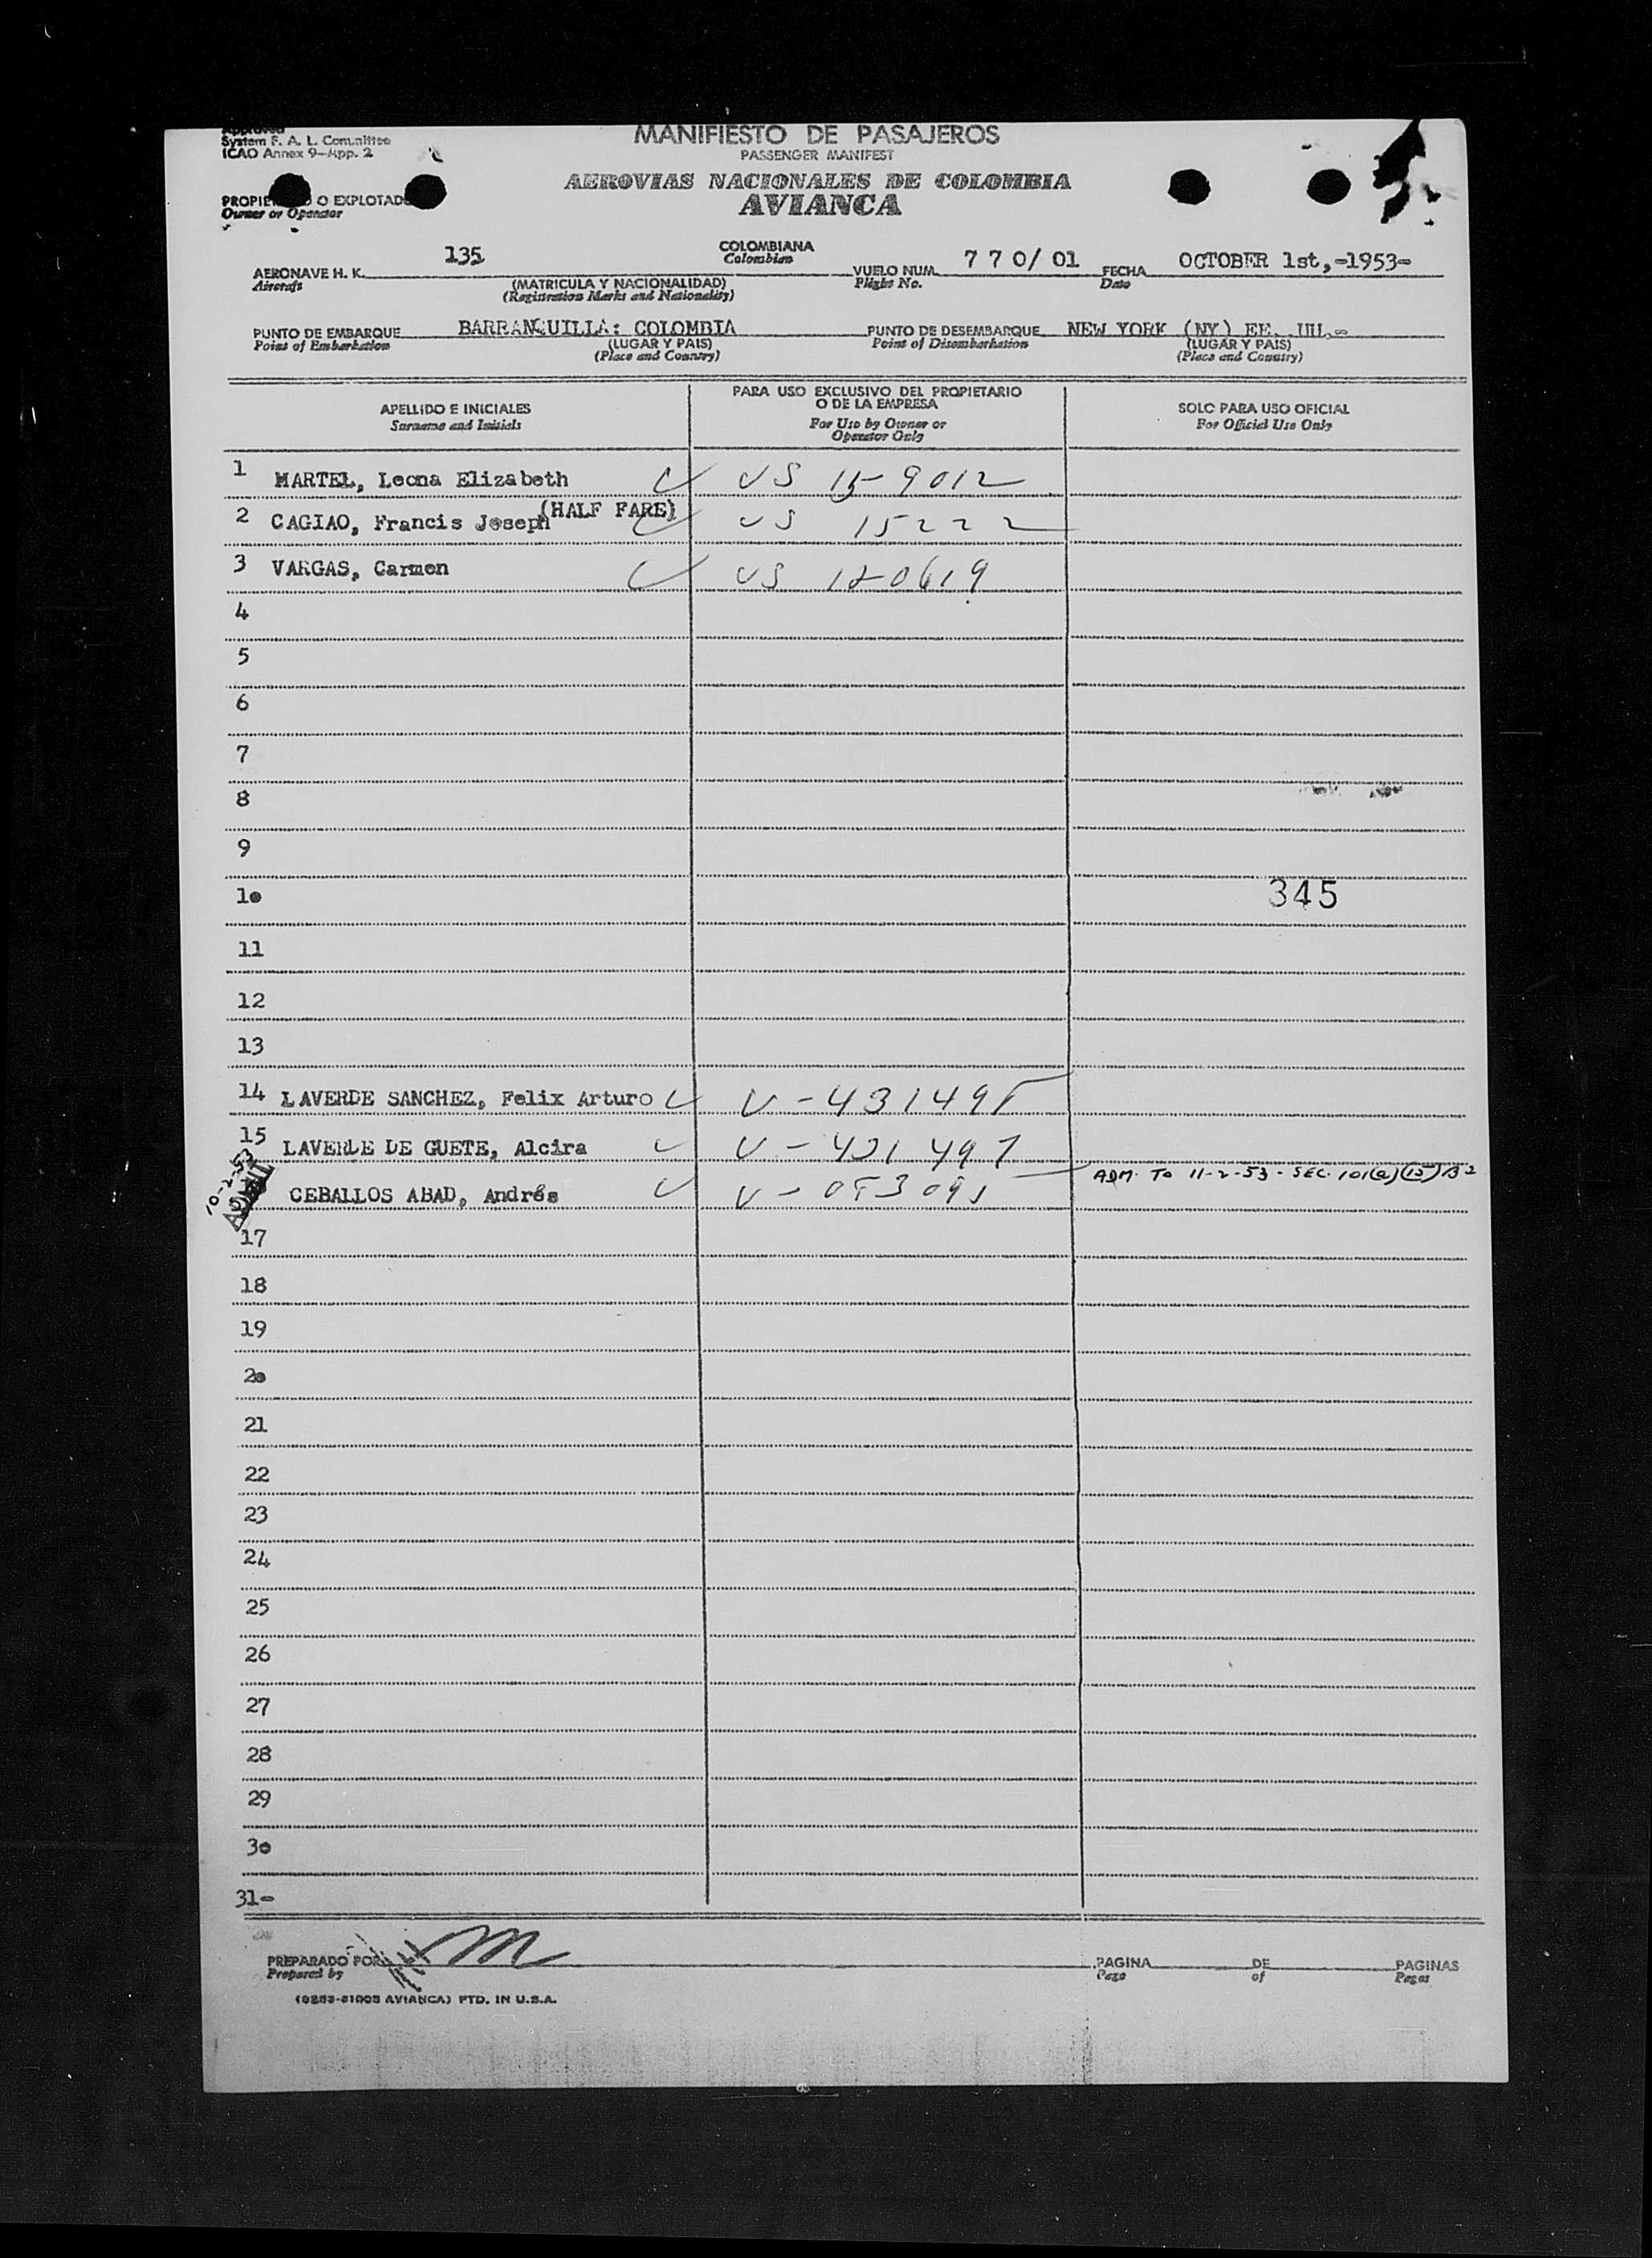 Approved
System F. A. L. Committee
ICAO Annex 9-App. 2
MANIFIESTO DE PASAJEROS
PASSENGER MANIFEST
AEROVIAS NACIONALES DE COLOMBIA
AVIANCA
O EXPLOTADO
Owner or Operator
AERONAVE H. K. 135 COLOMBIANA VUELO NUM. 7 7 0/ 01 FECHA OCTOBER 1st,-1953-
Aircraft Colombian Flight No. Date
(MATRICULA Y NACIONALIDAD)
(Registration Marks and Nationality)
PUNTO DE EMBARQUE BARRANQUILLA: COLOMBIA PUNTO DE DESEMBARQUE NEW YORK (NY) EE. UU.-
Point of Embarkation (LUGAR Y PAIS) Point of Disembarkation (LUGAR Y PAIS)
(Place and Country) (Place and Country)
APELLIDO E INICIALES
Surname and Initials
PARA USO EXCLUSIVO DEL PROPIETARIO
O DE LA EMPRESA
For Use by Owner or
Operator Only
SOLO PARA USO OFICIAL
For Official Use Only
1 MARTEL, Leona Elizabeth US 15-9012
2 CAGIAO, Francis Joseph (HALF FARE) US 15222
3 VARGAS, Carmen US 12-0619
4
5
6
7
8
9
10 345
11
12
13
14 LAVERDE SANCHEZ, Felix Arturo V-431495
15 LAVERDE DE GUETE, Alcira V-431497
10-2-53
CEBALLOS ABAD, Andrés ADM. TO 11-2-53 - SEC. 101(a)(15) B2
17
18
19
20
21
22
23
24
25
26
27
28
29
30
31-
PREPARADO POR PAGINA DE PAGINAS
Prepared by Page of Pages
AVIANCA) PTD. IN U.S.A.